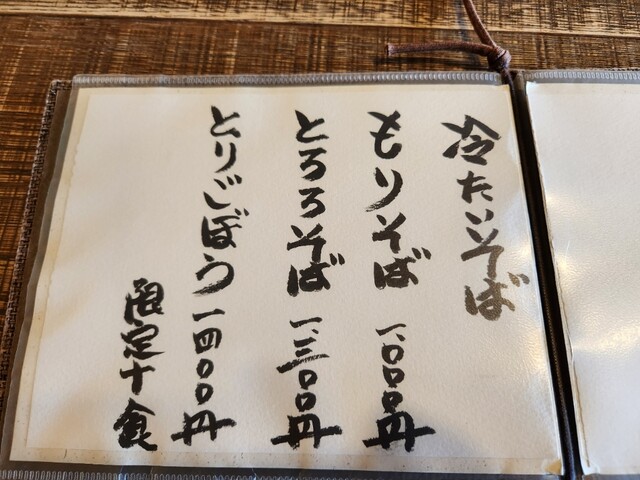 冷たいそば
もりそば 一、〇〇〇円
とろろそば 一、三〇〇円
とりごぼう 一四〇〇円
限定十食